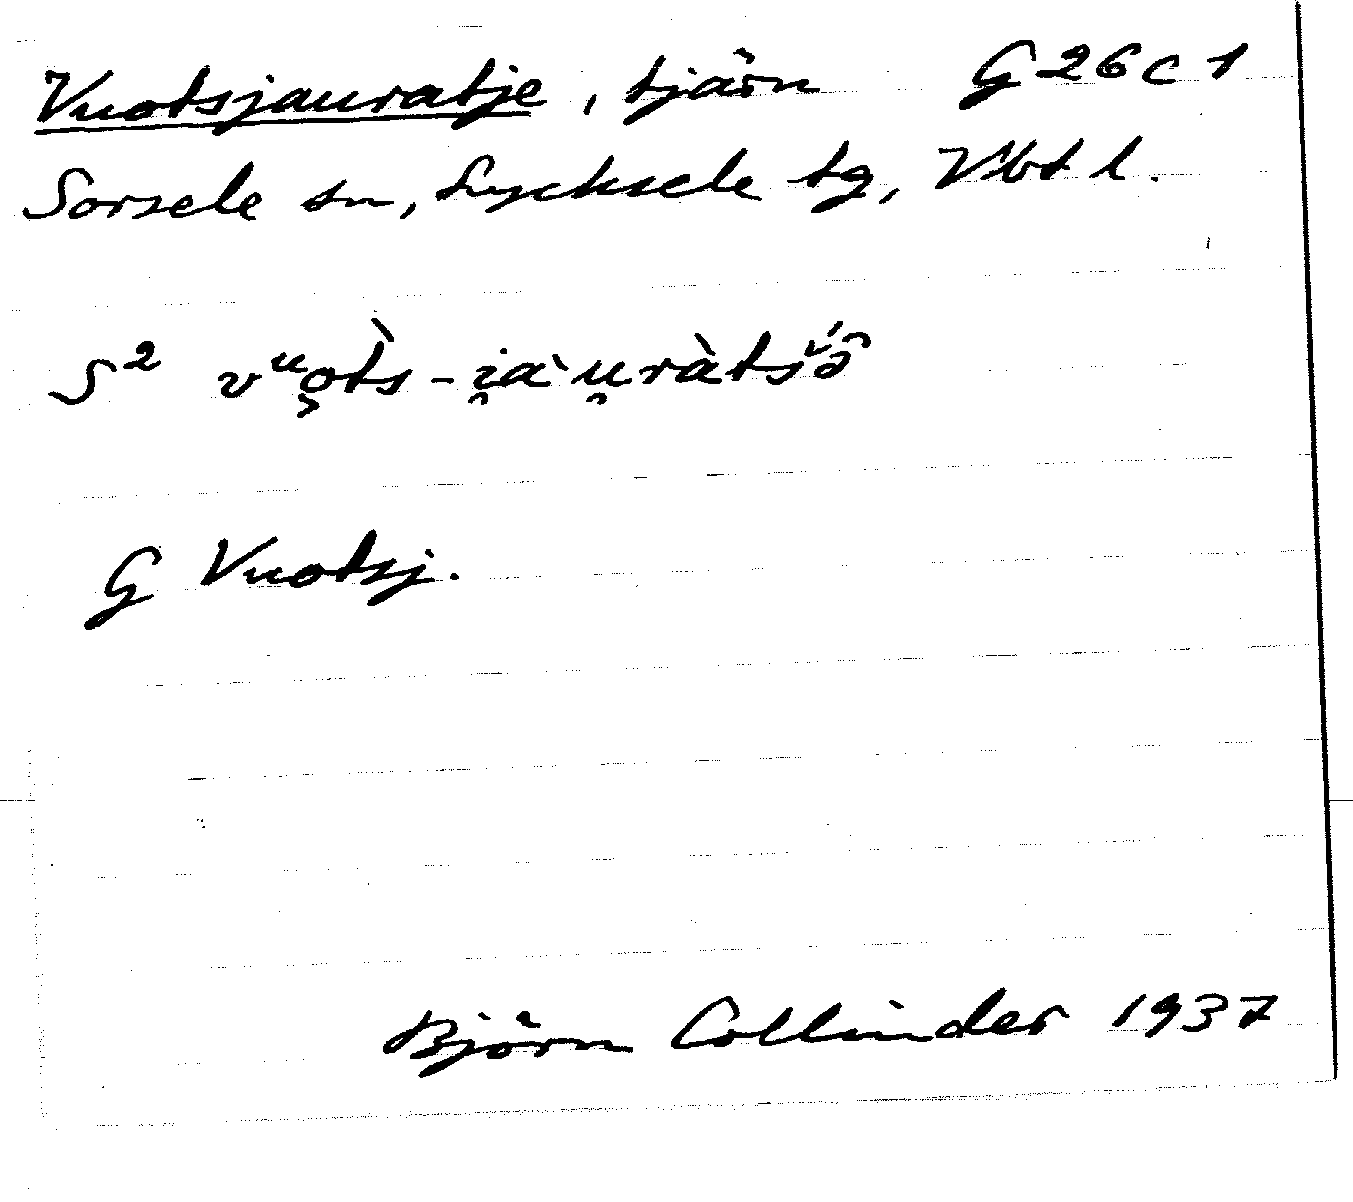 Vuotsjauratje, tjärn G 26 c 1
Sorsele sn, Lycksele tg, Vbt l.
S² vᵘo̧t̀s-i̯aˋu̯ràtśô
G Vuotsj.
Björn Collinder 1937